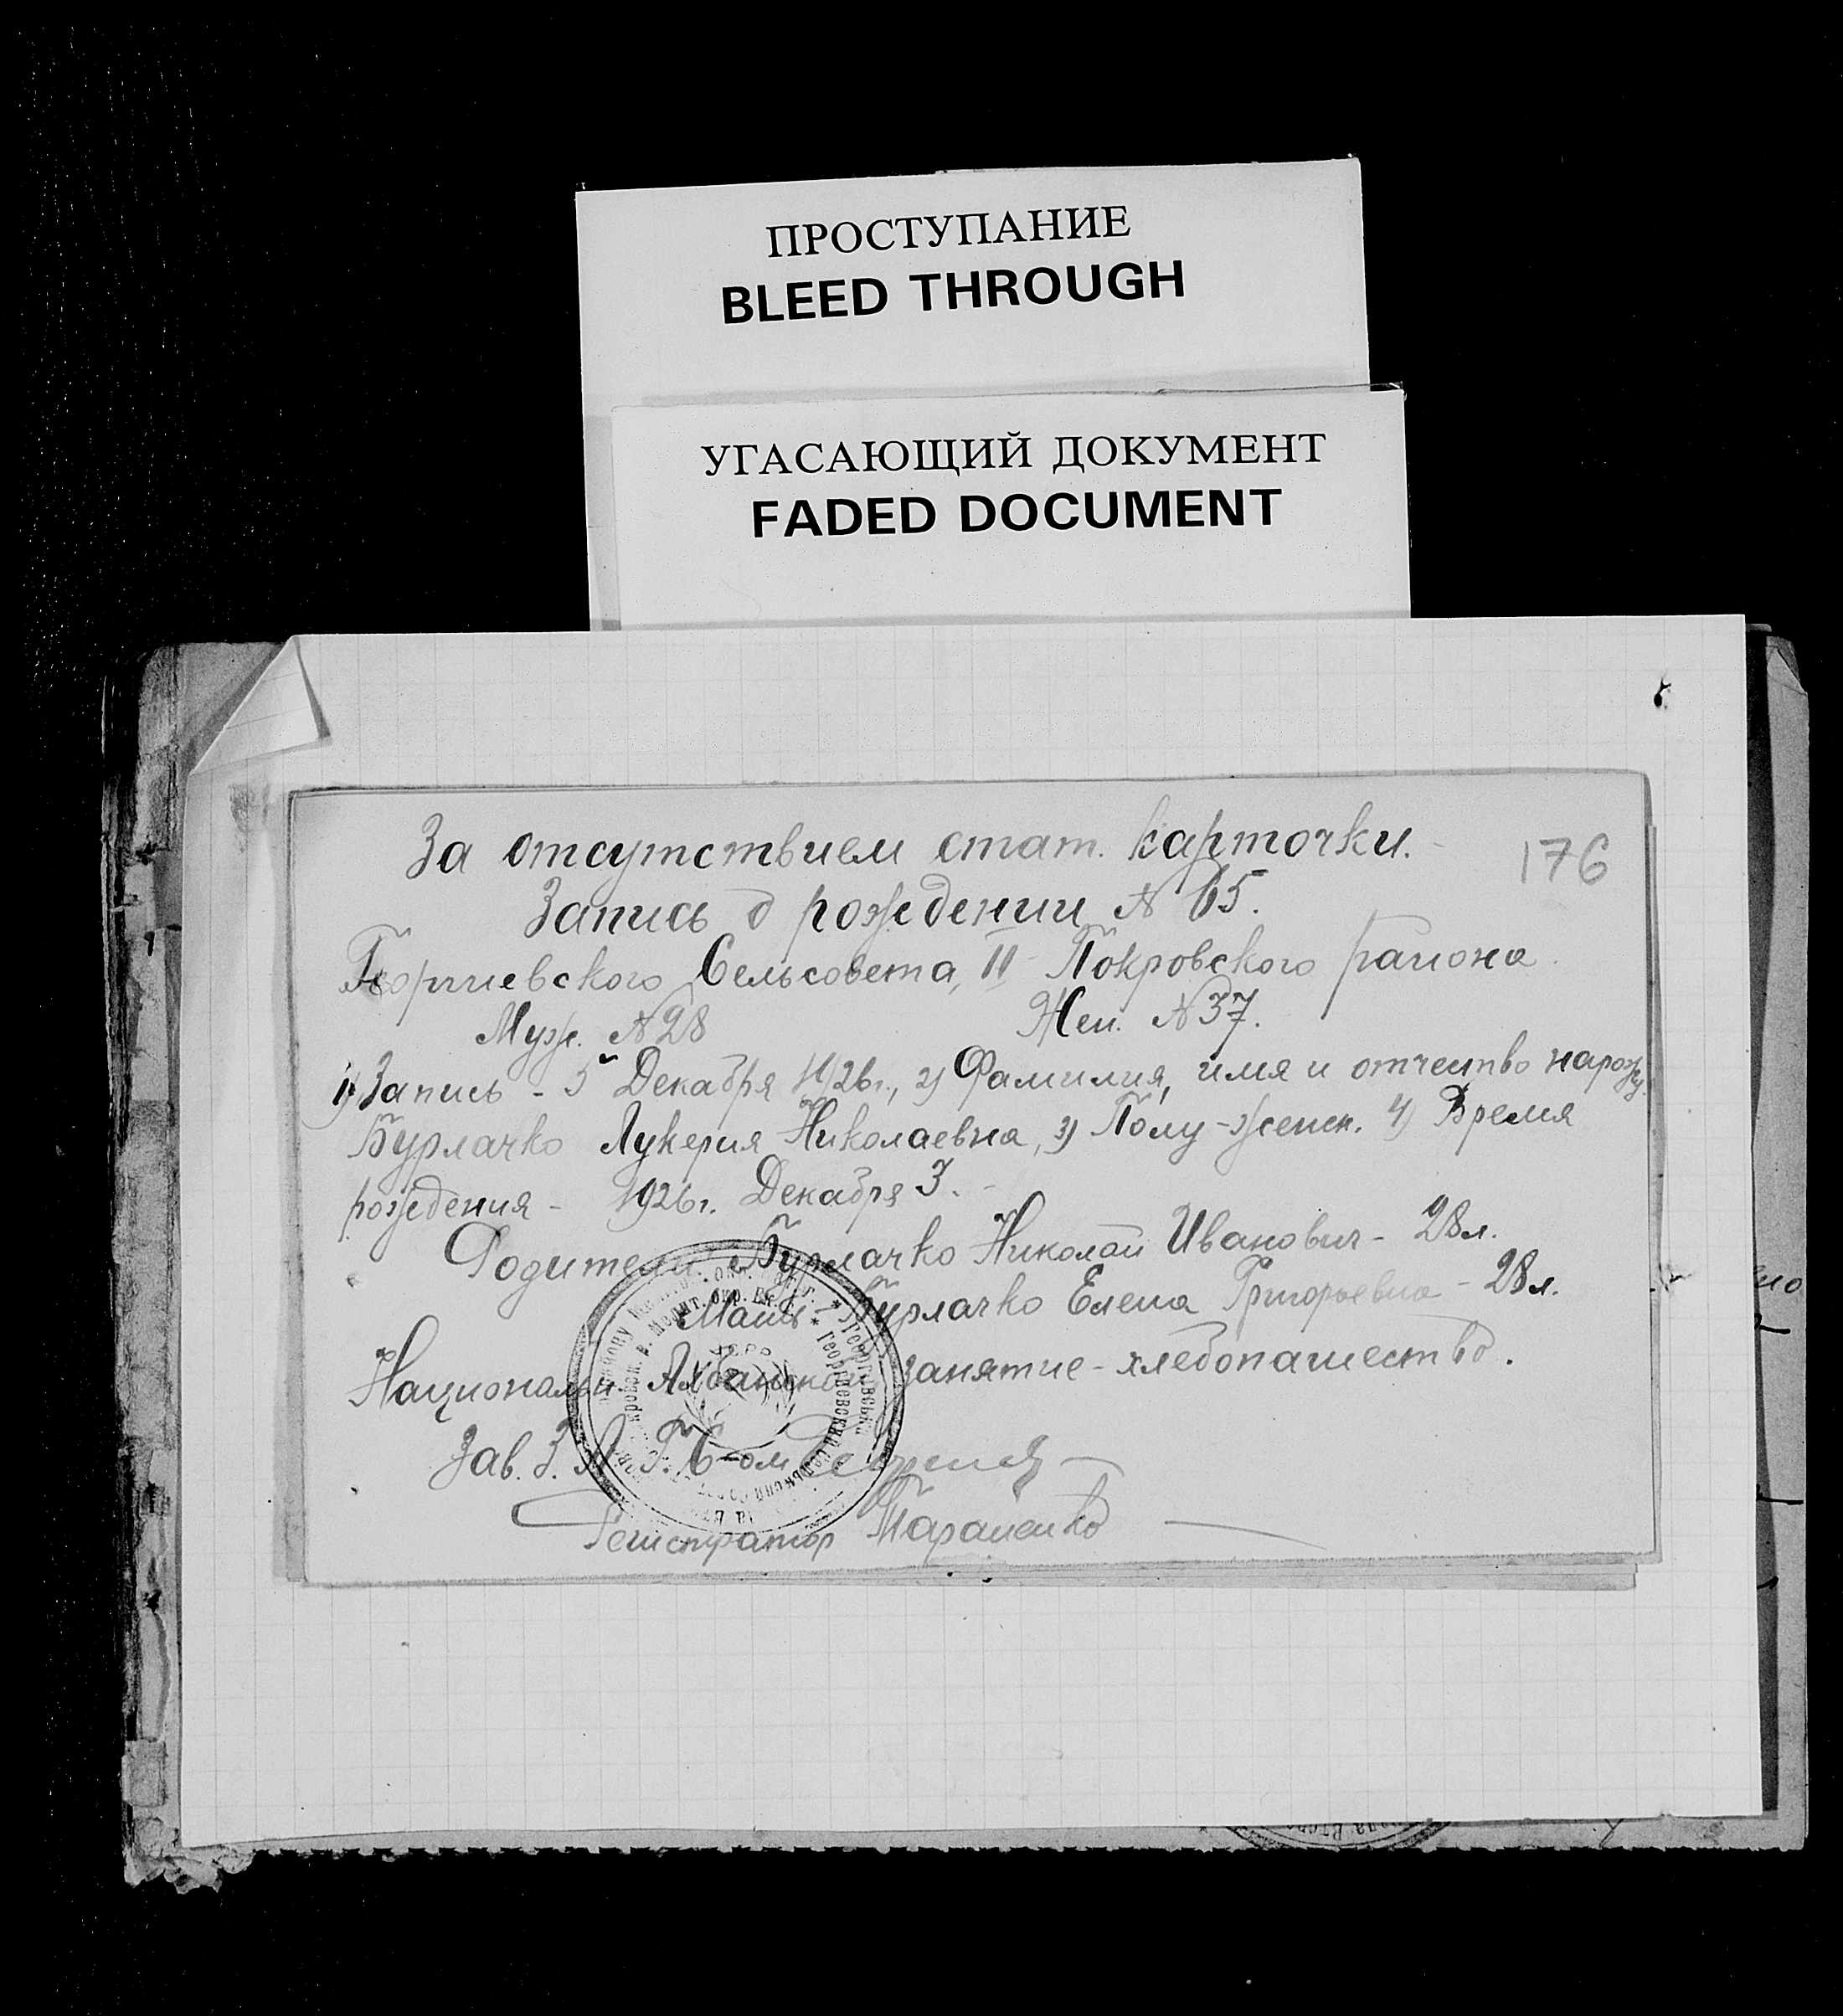 ПРОСТУПАНИЕ
BLEED THROUGH
УГАСАЮЩИЙ ДОКУМЕНТ
FADED DOCUMENT
176
За отсутствием стат. карточки.
Запись о рождении № 65.
Георгиевского Сельсовета, II Покровского района
Муж. № 28 Жен. № 37.
1) Запись - 5 Декабря 1926 г., 2) Фамилия, имя и отчество нарожд.
Бурлачко Лукерия Николаевна, 3) Полу - женск. 4) Время
рождения - 1926 г. Декабря 3.
Родители Бурлачко Николай Иванович - 28 л.
Мать - Бурлачко Елена Григорьевна - 28 л.
Национальн. Албанской занятие - хлебопашество.
Зав. З.А.Г.С-ом
Регистратор Тараненко